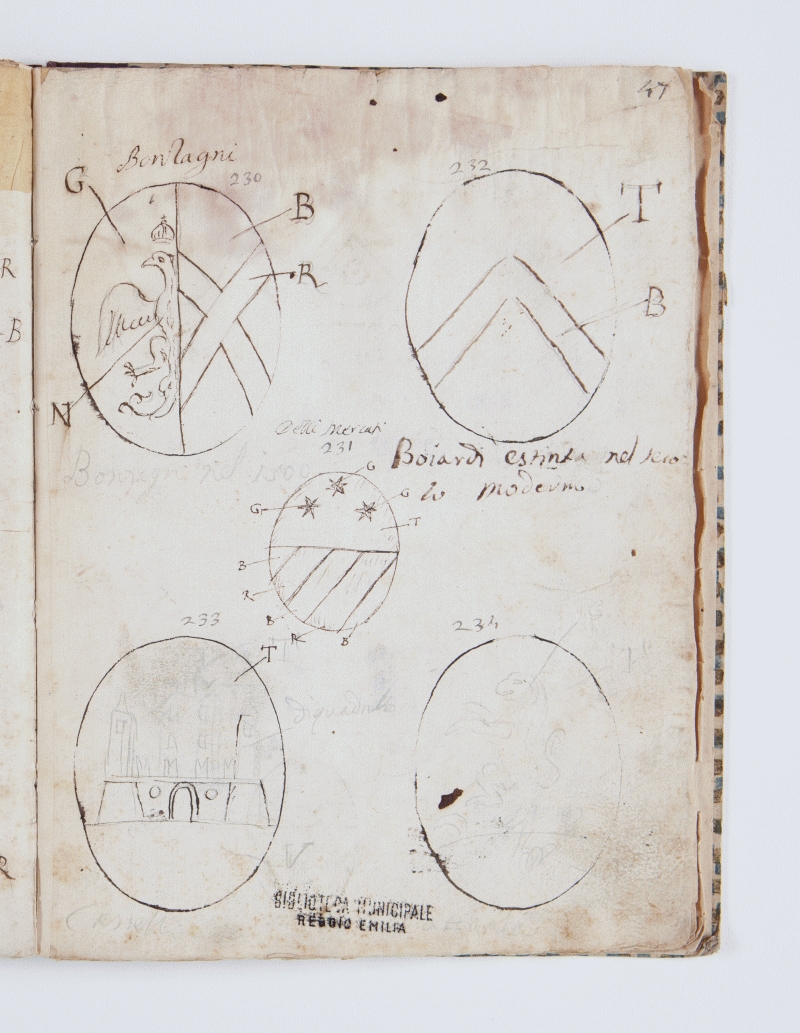 47
Bonzagni
230
G
B
R
N
232
T
B
Delli Mercati
231
G
G
G
T
B
R
B
R
B
Boiardi estinta nel seco-
lo moderno
Bonzagni nel 1500
233
T
234
BIBLIOTECA MUNICIPALE
REGGIO EMILIA
R
B
R